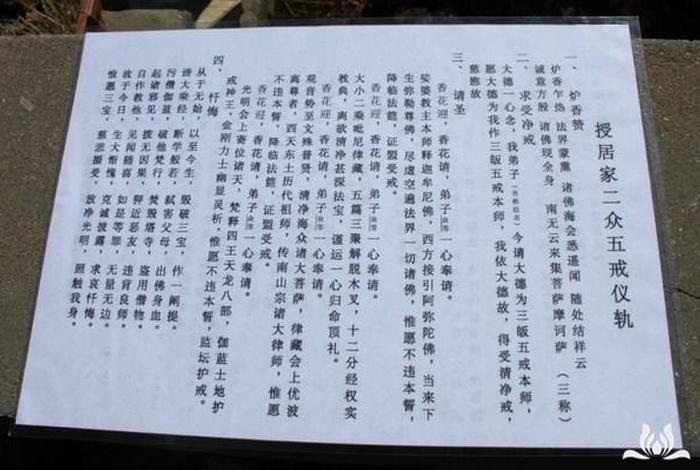 授居家二众五戒仪轨
一、炉香赞
炉香乍热 法界蒙薰 诸佛海会悉遥闻 随处结祥云
诚意方殷 诸佛现全身 南无云来集菩萨摩诃萨（三称）
二、求受净戒
大德一心念，我弟子 今请大德为三皈五戒本师，
愿大德为我作三皈五戒本师，我依大德故，得受清净戒，
慈愍故
三、请圣
香花迎，香花请，弟子 一心奉请。
娑婆教主本师释迦牟尼佛，西方接引阿弥陀佛，当来下
生弥勒尊佛，尽虚空遍法界一切诸佛，惟愿不违本誓，
降临法筵，证盟受戒。
香花迎，香花请，弟子 一心奉请。
大小二乘毗尼律藏，五篇三聚解脱木叉，十二分经权实
教典，离欲清净甚深法宝，谨运一心归命顶礼。
香花迎，香花请，弟子 一心奉请。
观音势至文殊普贤，清净海众诸大菩萨，律藏会上优波
离尊者，西天东土历代祖师，传南山宗诸大律师，惟愿
不违本誓，降临法筵，证盟受戒。
香花迎，香花请，弟子 一心奉请。
光明会上寄位诸天，梵释四王天龙八部，伽蓝土地护
戒神王，金刚力士幽显灵祈，惟愿不违本誓，监坛护戒。
四、忏悔
从于无始，以至今生，毁破三宝，作一阐提。
谤大乘经，断学般若，弑害父母，出佛身血。
污僧伽蓝，破他梵行，焚毁塔寺，盗用僧物。
起诸邪见，拨无因果，狎近恶友，违背良师。
自作教他，见闻随喜，如是等罪，无量无边。
故于今日，生大惭愧，克诚披露，求哀忏悔。
惟愿三宝，慈悲摄受，放净光明，照触我身。